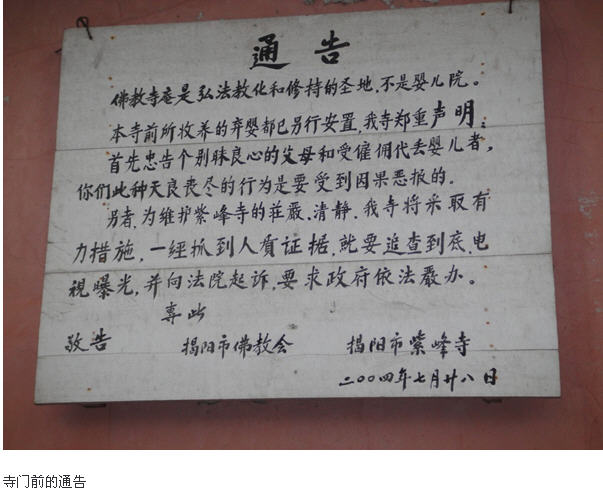 通告
佛教寺庵是弘法教化和修持的圣地,不是婴儿院。
本寺前所收养的弃婴都已另行安置,我寺郑重声明:
首先忠告个别昧良心的父母和受雇佣代丢婴儿者,
你们此种天良丧尽的行为是要受到因果恶报的。
另者,为维护紫峰寺的荘嚴、清静,我寺将采取有
力措施,一经抓到人質证据,就要追查到底,电
視曝光,并向法院起诉,要求政府依法嚴办。
專此
敬告 揭阳市佛教会 揭阳市紫峰寺
二00四年七月廿八日
寺门前的通告